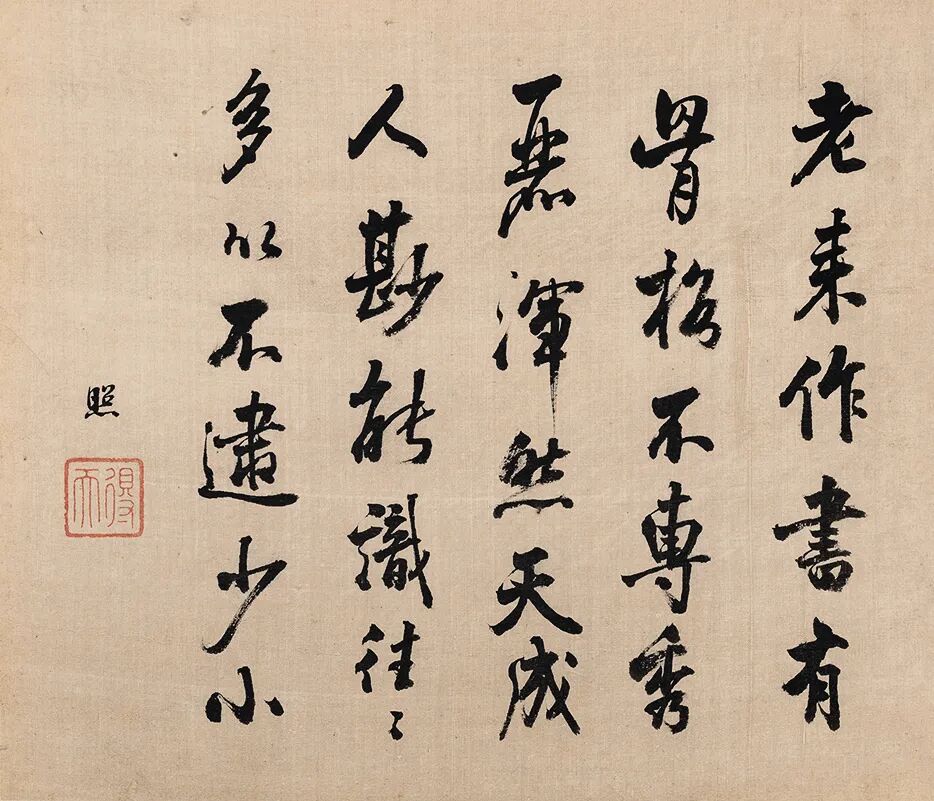 老来作書有
骨格不專秀
麗渾然天成
人尠能識往〻
多以不逮少小
照
得天